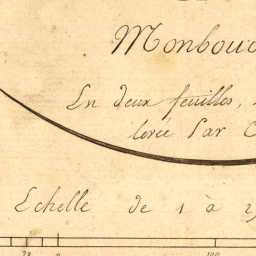 Monbou
En deux feuilles,
levée Par C
Echelle de 1 à 2